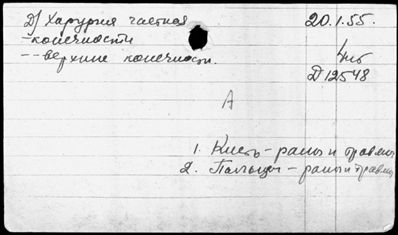 Д) Хирургия частная 20.1.55.
- конечности
-- верхние конечности.
Д 12548
А
1. Кисть - раны и травмы
2. Пальцы - раны и травмы